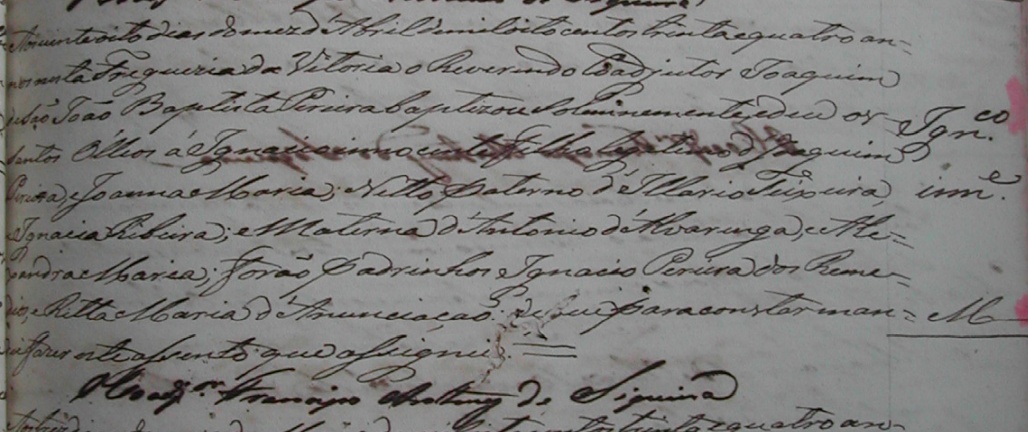 Aos vinte oito dias do mez d'Abril de mil oito centos trinta e quatro an=
nos nesta Fregueria da Vitoria o Reverendo Coadjutor Joaquim
de São João Baptista Pereira baptizou solemnemente, e deu os
Santos Olleos á Ignacio innocente Filho legitimo de Joaquim
Pereira, e Joanna Maria; Netto paterno de Teixeira,
e Ignacia Ribeira; e Materna d'Antonio d'Alvarenga, e Ale=
xandra Maria; forão Padrinhos Ignacio Pereira dos Reme=
dios, e Ritta Maria d'Anunciação: de que para constar man=
dei fazer este assento que assignei.
Francisco de Siqueira
Ign.co
inn.e
M
trinta e quatro an=